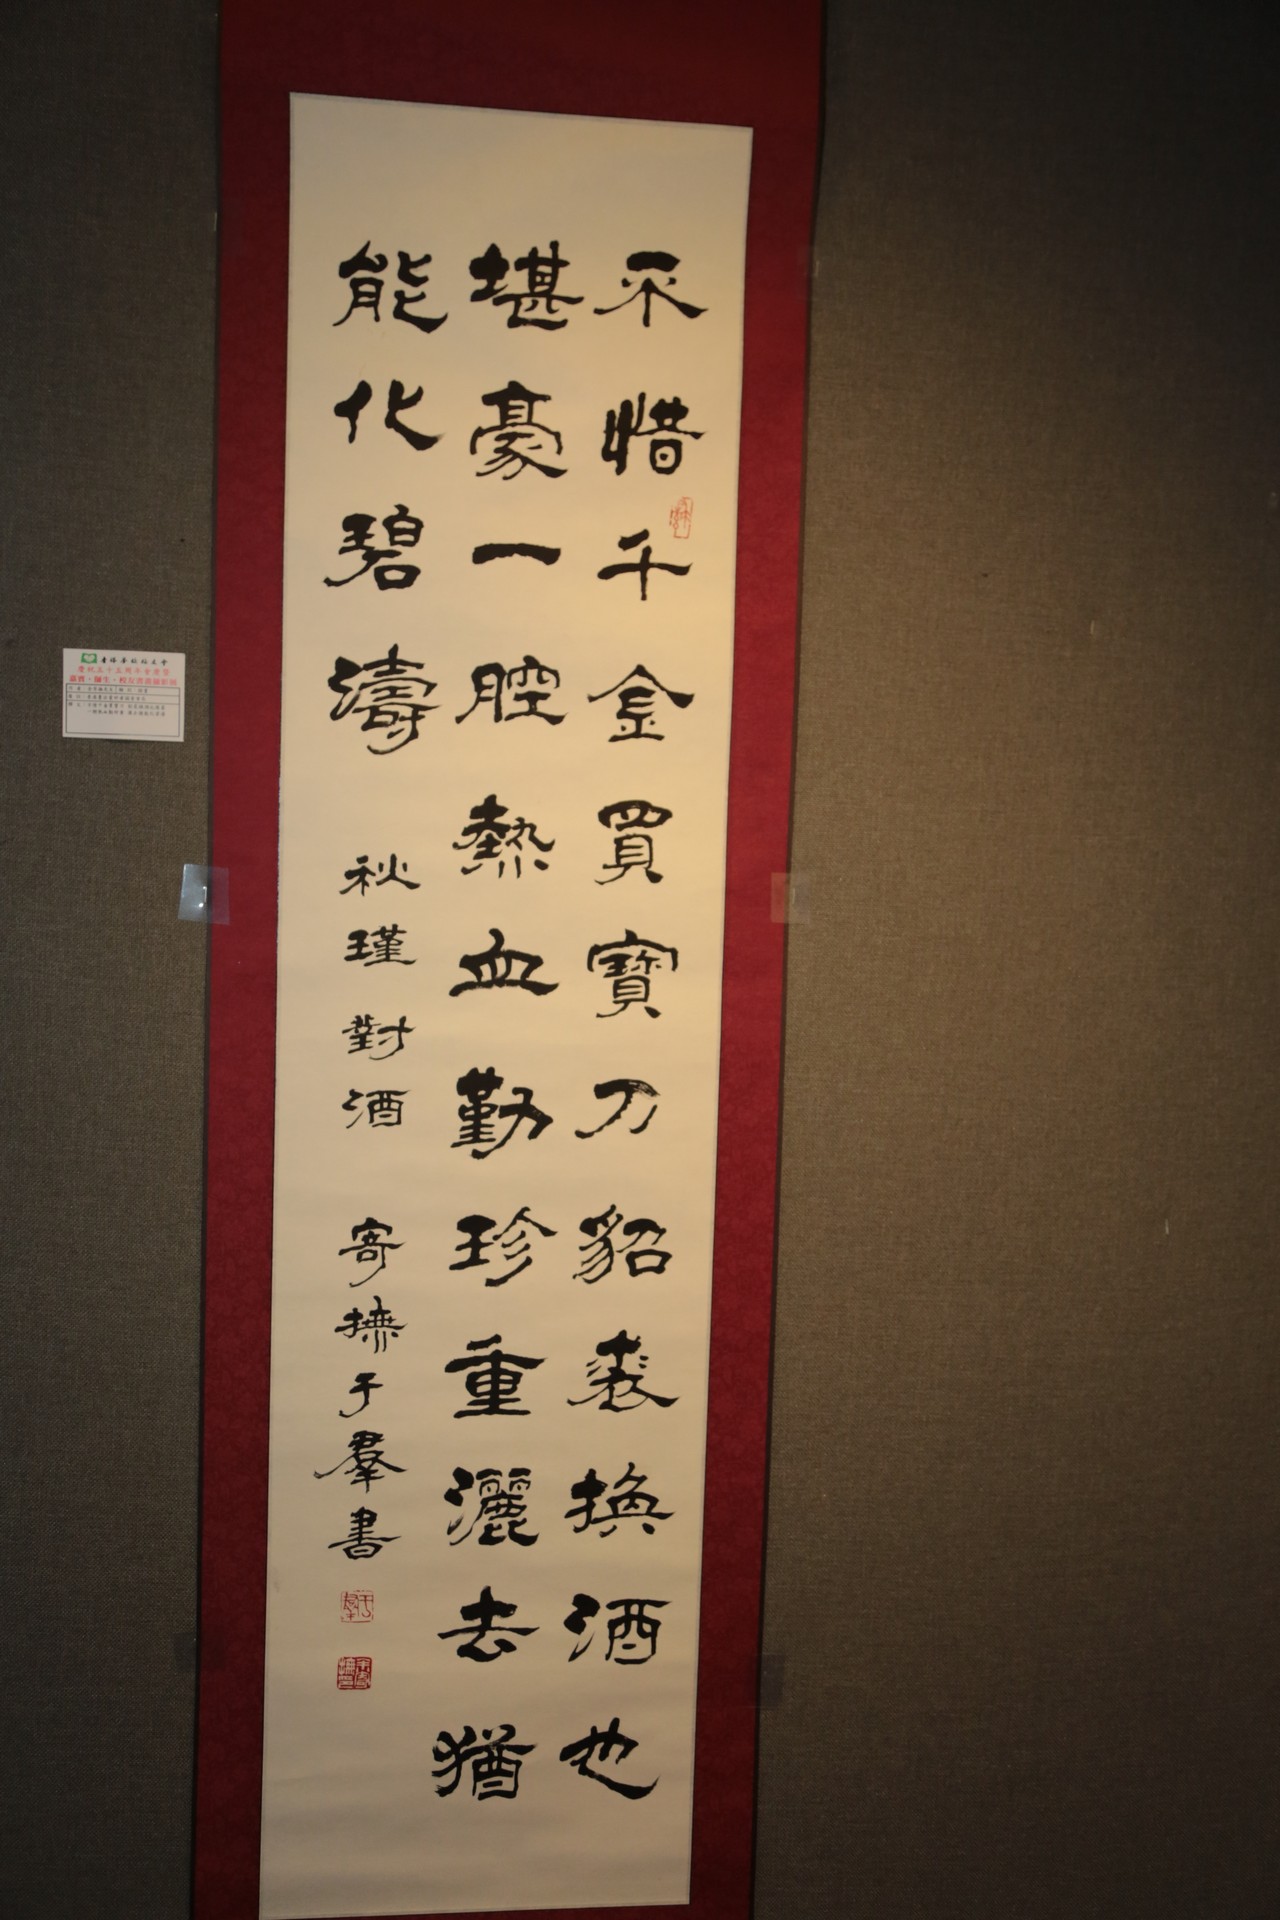 不惜千金買寶刀貂裘換酒也
堪豪一腔熱血勤珍重灑去猶
能化碧濤 秋瑾對酒 寄撫于羣書